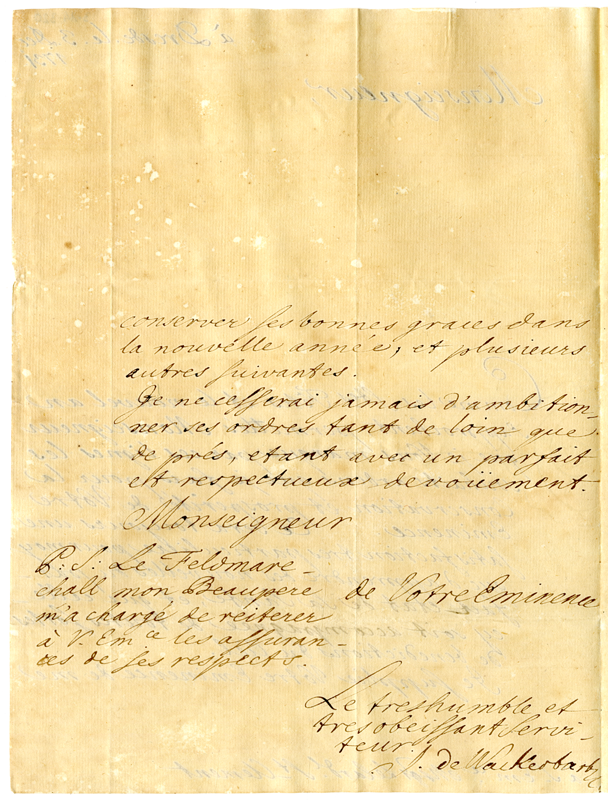 conserver ses bonnes graces dans
la nouvelle année, et plusieurs
autres suivantes.
Je ne cesserai jamais d'ambition-
ner ses ordres tant de loin que
de prés, etant avec un parfait
et respectueux devoüement.
Monseigneur
P: S: Le Feldmare-
chall mon Beaupere
m'a chargé de reïterer
à V. Em.ce les assuran-
ces de ses respects.
de Votre Eminence
Le treshumble et
tres obeissant servi-
teur
J. de Wackerbarth